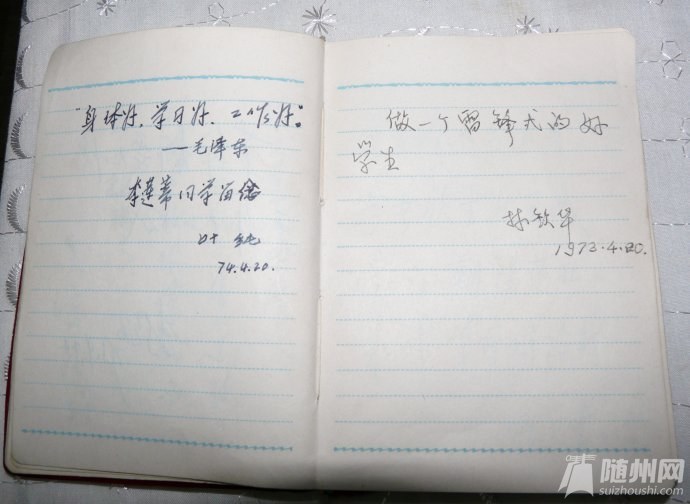 "身体好，学习好，工作好"。
——毛泽东
李莲蒂同学留念
叶纯
74.4.20.
做一个雷锋式的好
学生
林钦华
1973.4.20.
随州网
suizhoushi.com